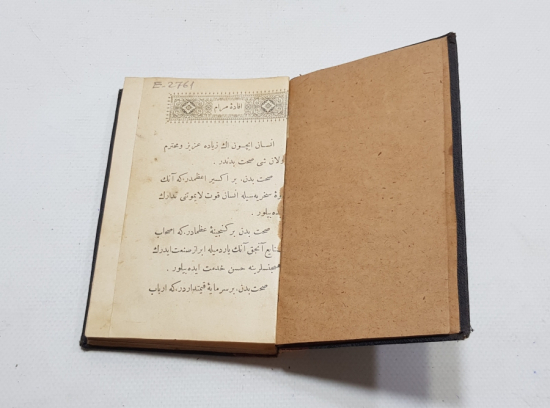 E. 2761
افادهٔ مرام
انسان ایچون اك زیاده عزیز و محترم
اولان شی صحت بدندر .
صحت بدن، بر اكسیر اعظمدر، كه آنك
سیله انسان قوت لایموتنی تدارك
ایده بیلور .
صحت بدن بر گنجینهٔ عظمادر، كه اصحاب
صنایع آنجق آنك یاردمیله ابراز صنعت ایدرك
حسن خدمت ایده بیلور .
صحت بدن، بر سرمایهٔ قیمتداردر، كه ارباب